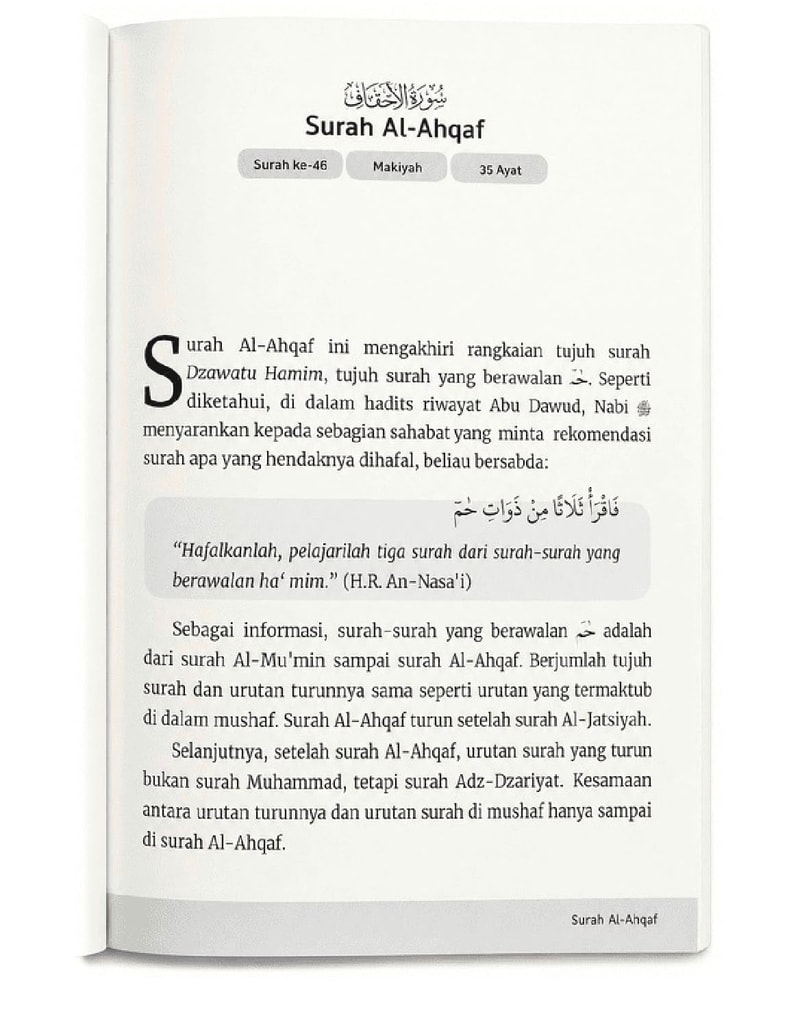 سُوْرَةُ الْأَحْقَافِ
Surah Al-Ahqaf
Surah ke-46 Makiyah 35 Ayat
Surah Al-Ahqaf ini mengakhiri rangkaian tujuh surah
Dzawatu Hamim, tujuh surah yang berawalan حٰمۤ. Seperti
diketahui, di dalam hadits riwayat Abu Dawud, Nabi ﷺ
menyarankan kepada sebagian sahabat yang minta rekomendasi
surah apa yang hendaknya dihafal, beliau bersabda:
فَاقْرَأْ ثَلَاثًا مِنْ ذَوَاتِ حٰمۤ
“Hafalkanlah, pelajarilah tiga surah dari surah-surah yang
berawalan ha‘ mim.” (H.R. An-Nasa'i)
Sebagai informasi, surah-surah yang berawalan حٰمۤ adalah
dari surah Al-Mu'min sampai surah Al-Ahqaf. Berjumlah tujuh
surah dan urutan turunnya sama seperti urutan yang termaktub
di dalam mushaf. Surah Al-Ahqaf turun setelah surah Al-Jatsiyah.
Selanjutnya, setelah surah Al-Ahqaf, urutan surah yang turun
bukan surah Muhammad, tetapi surah Adz-Dzariyat. Kesamaan
antara urutan turunnya dan urutan surah di mushaf hanya sampai
di surah Al-Ahqaf.
Surah Al-Ahqaf